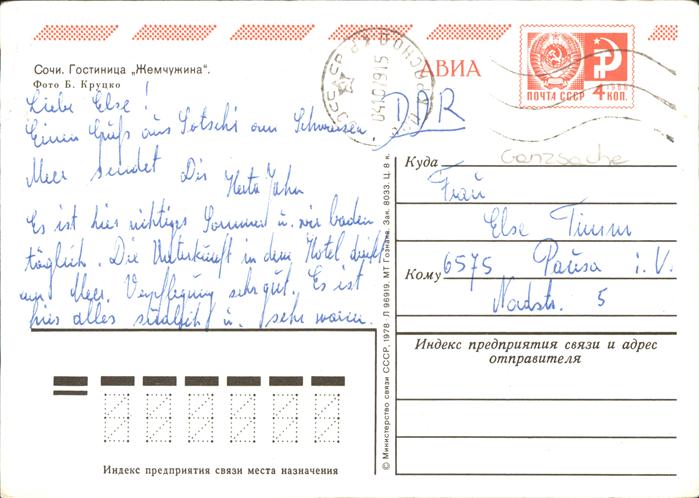 Сочи. Гостиница „Жемчужина".
Фото Б. Круцко
АВИА
ПОЧТА СССР 4 КОП.
1966
СССР
Liebe Else!
Einen Gruß aus Sotschi am Schwarzen
Meer sendet Dir Herta Jahn
Es ist hier richtiger Sommer u. wir baden
täglich. Die Unterkunft in dem Hotel direkt
am Meer. Verpflegung sehr gut. Es ist
hier alles südlich u. sehr warm.
DDR
Ganzsache
Куда
Frau
Else Timm
Кому
6575 Pausa i. V.
Nordstr. 5
Индекс предприятия связи и адрес
отправителя
Индекс предприятия связи места назначения
© Министерство связи СССР, 1978. Л 96919. МТ Гознака. Зак. 8033. Ц. 8 к.